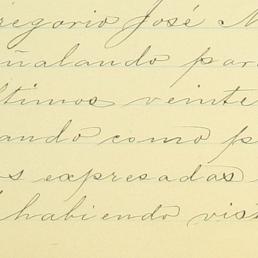 regorio José M
ñalando par
ltimos veinte
ando como p
os expresadas
habiendo vist